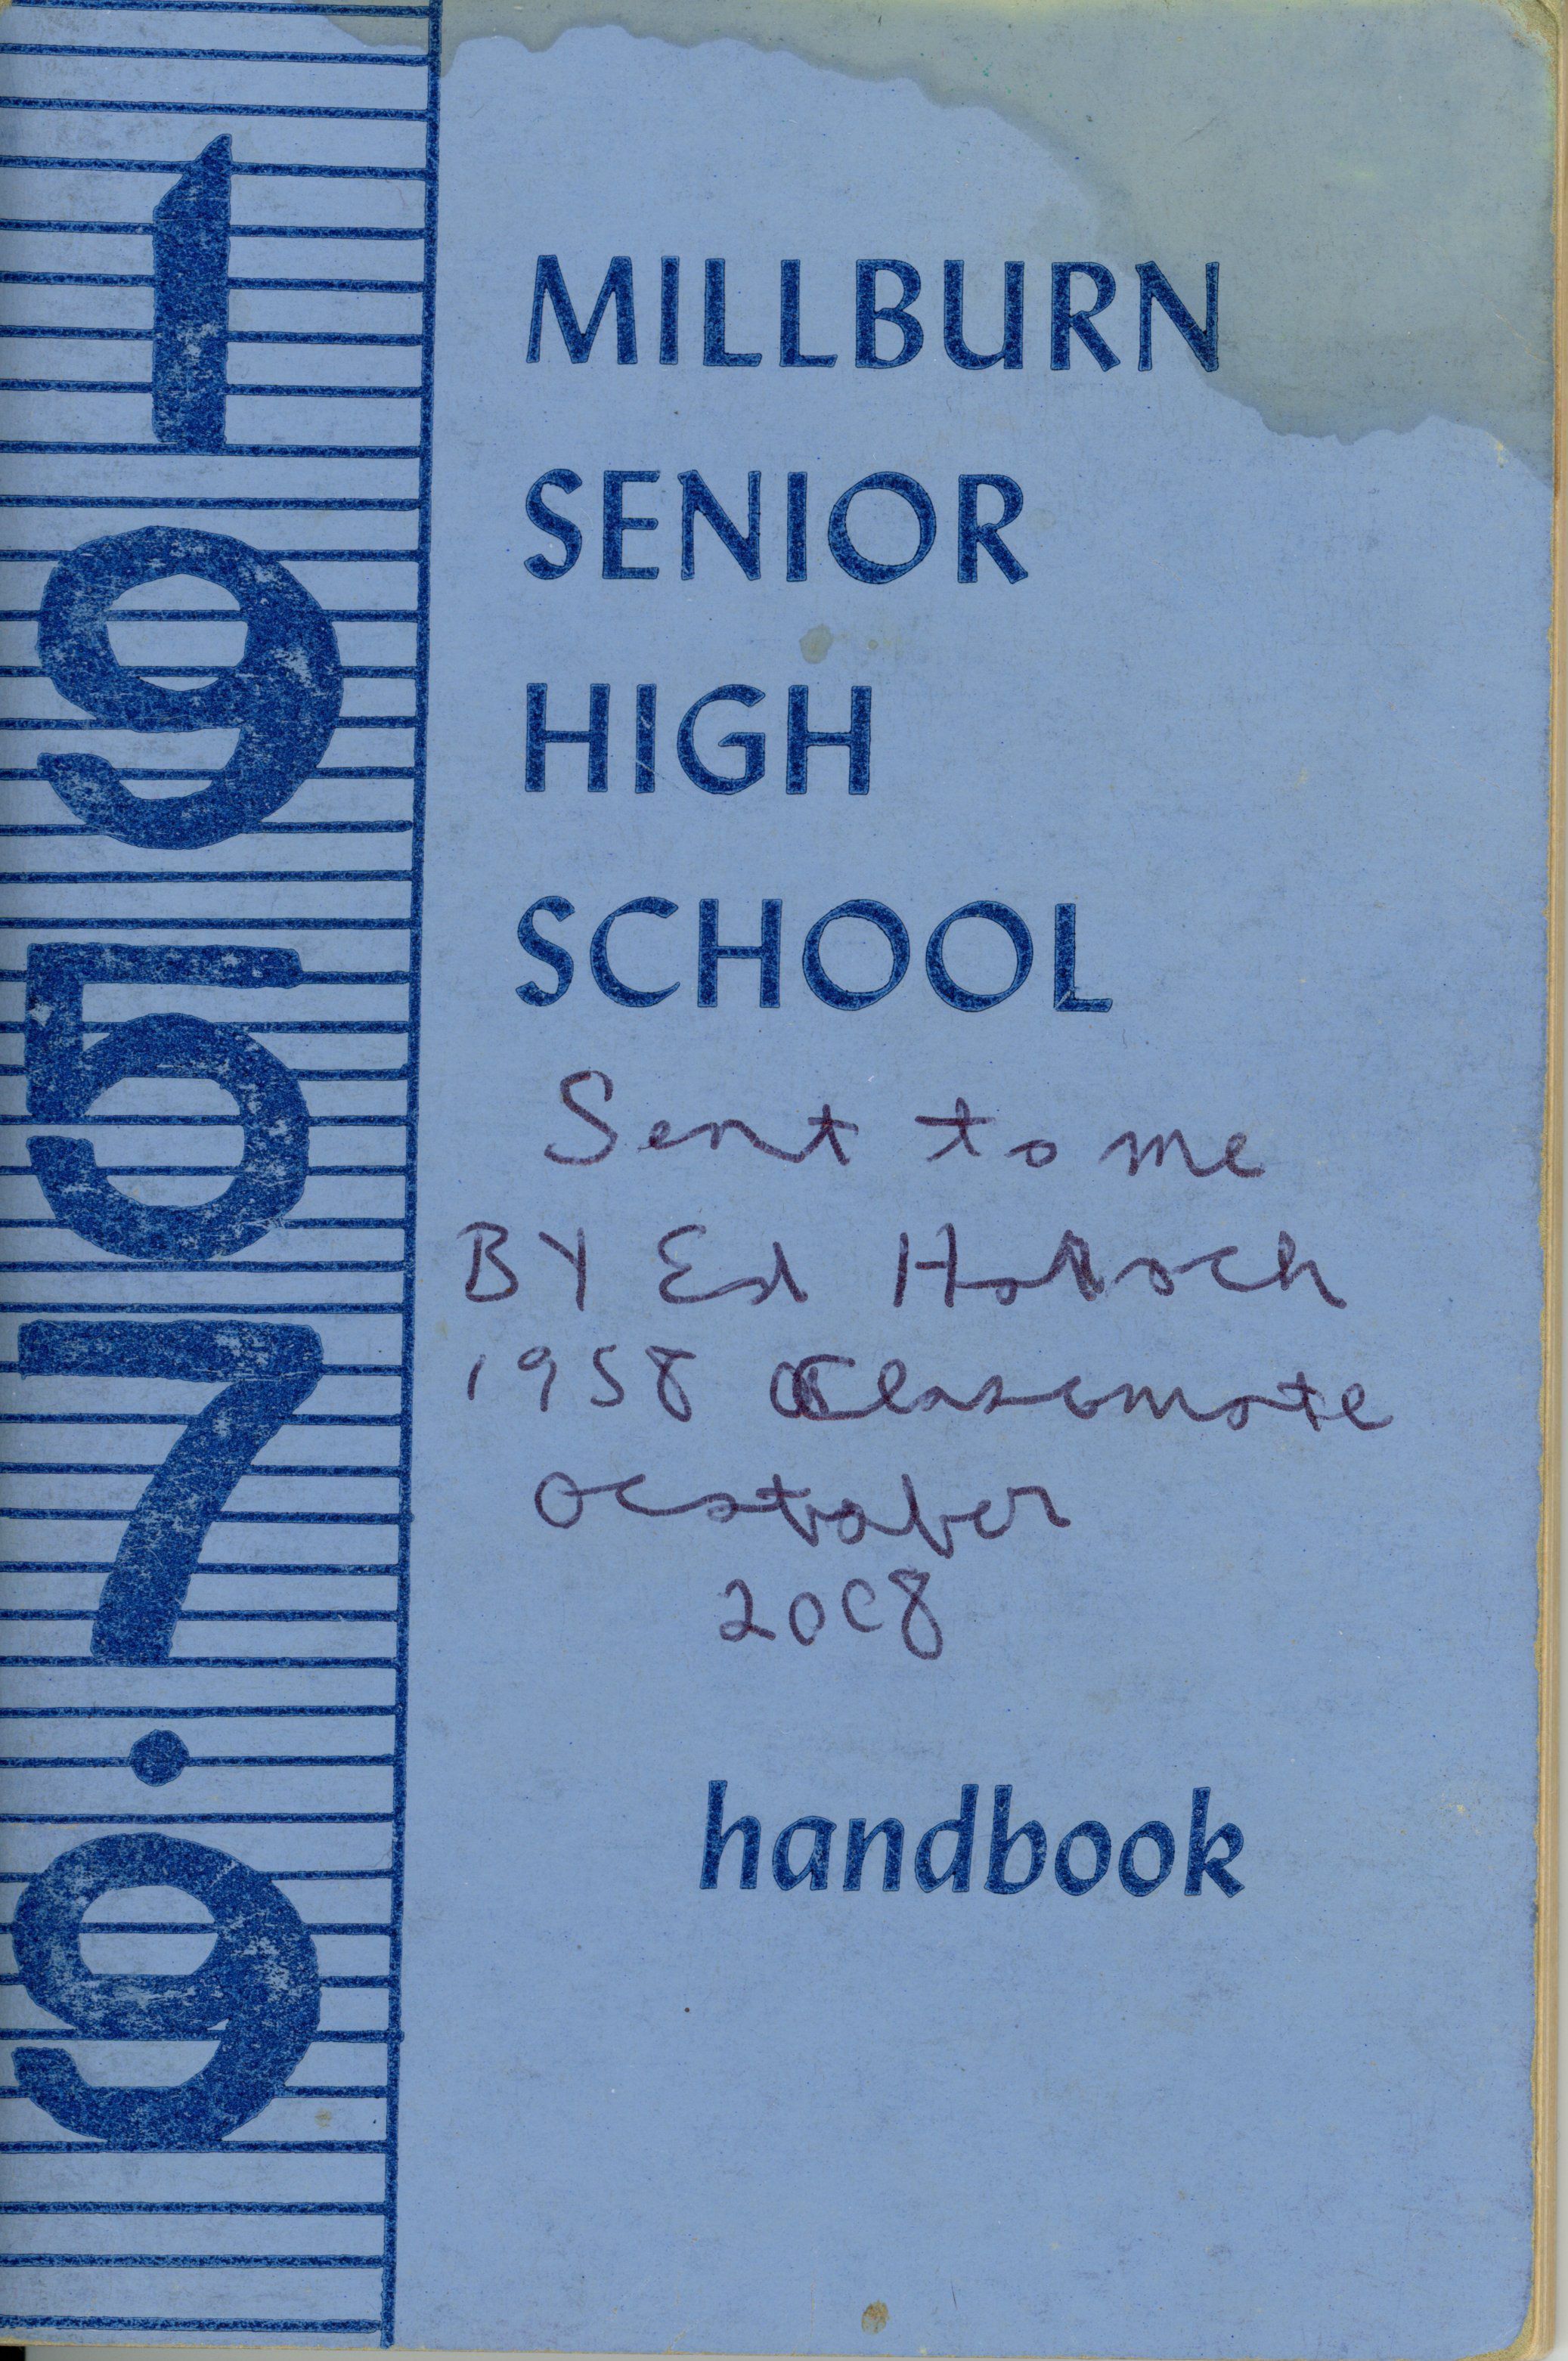 1957.9
MILLBURN
SENIOR
HIGH
SCHOOL
Sent to me
BY Ed
1958 Classmate
October
2008
handbook